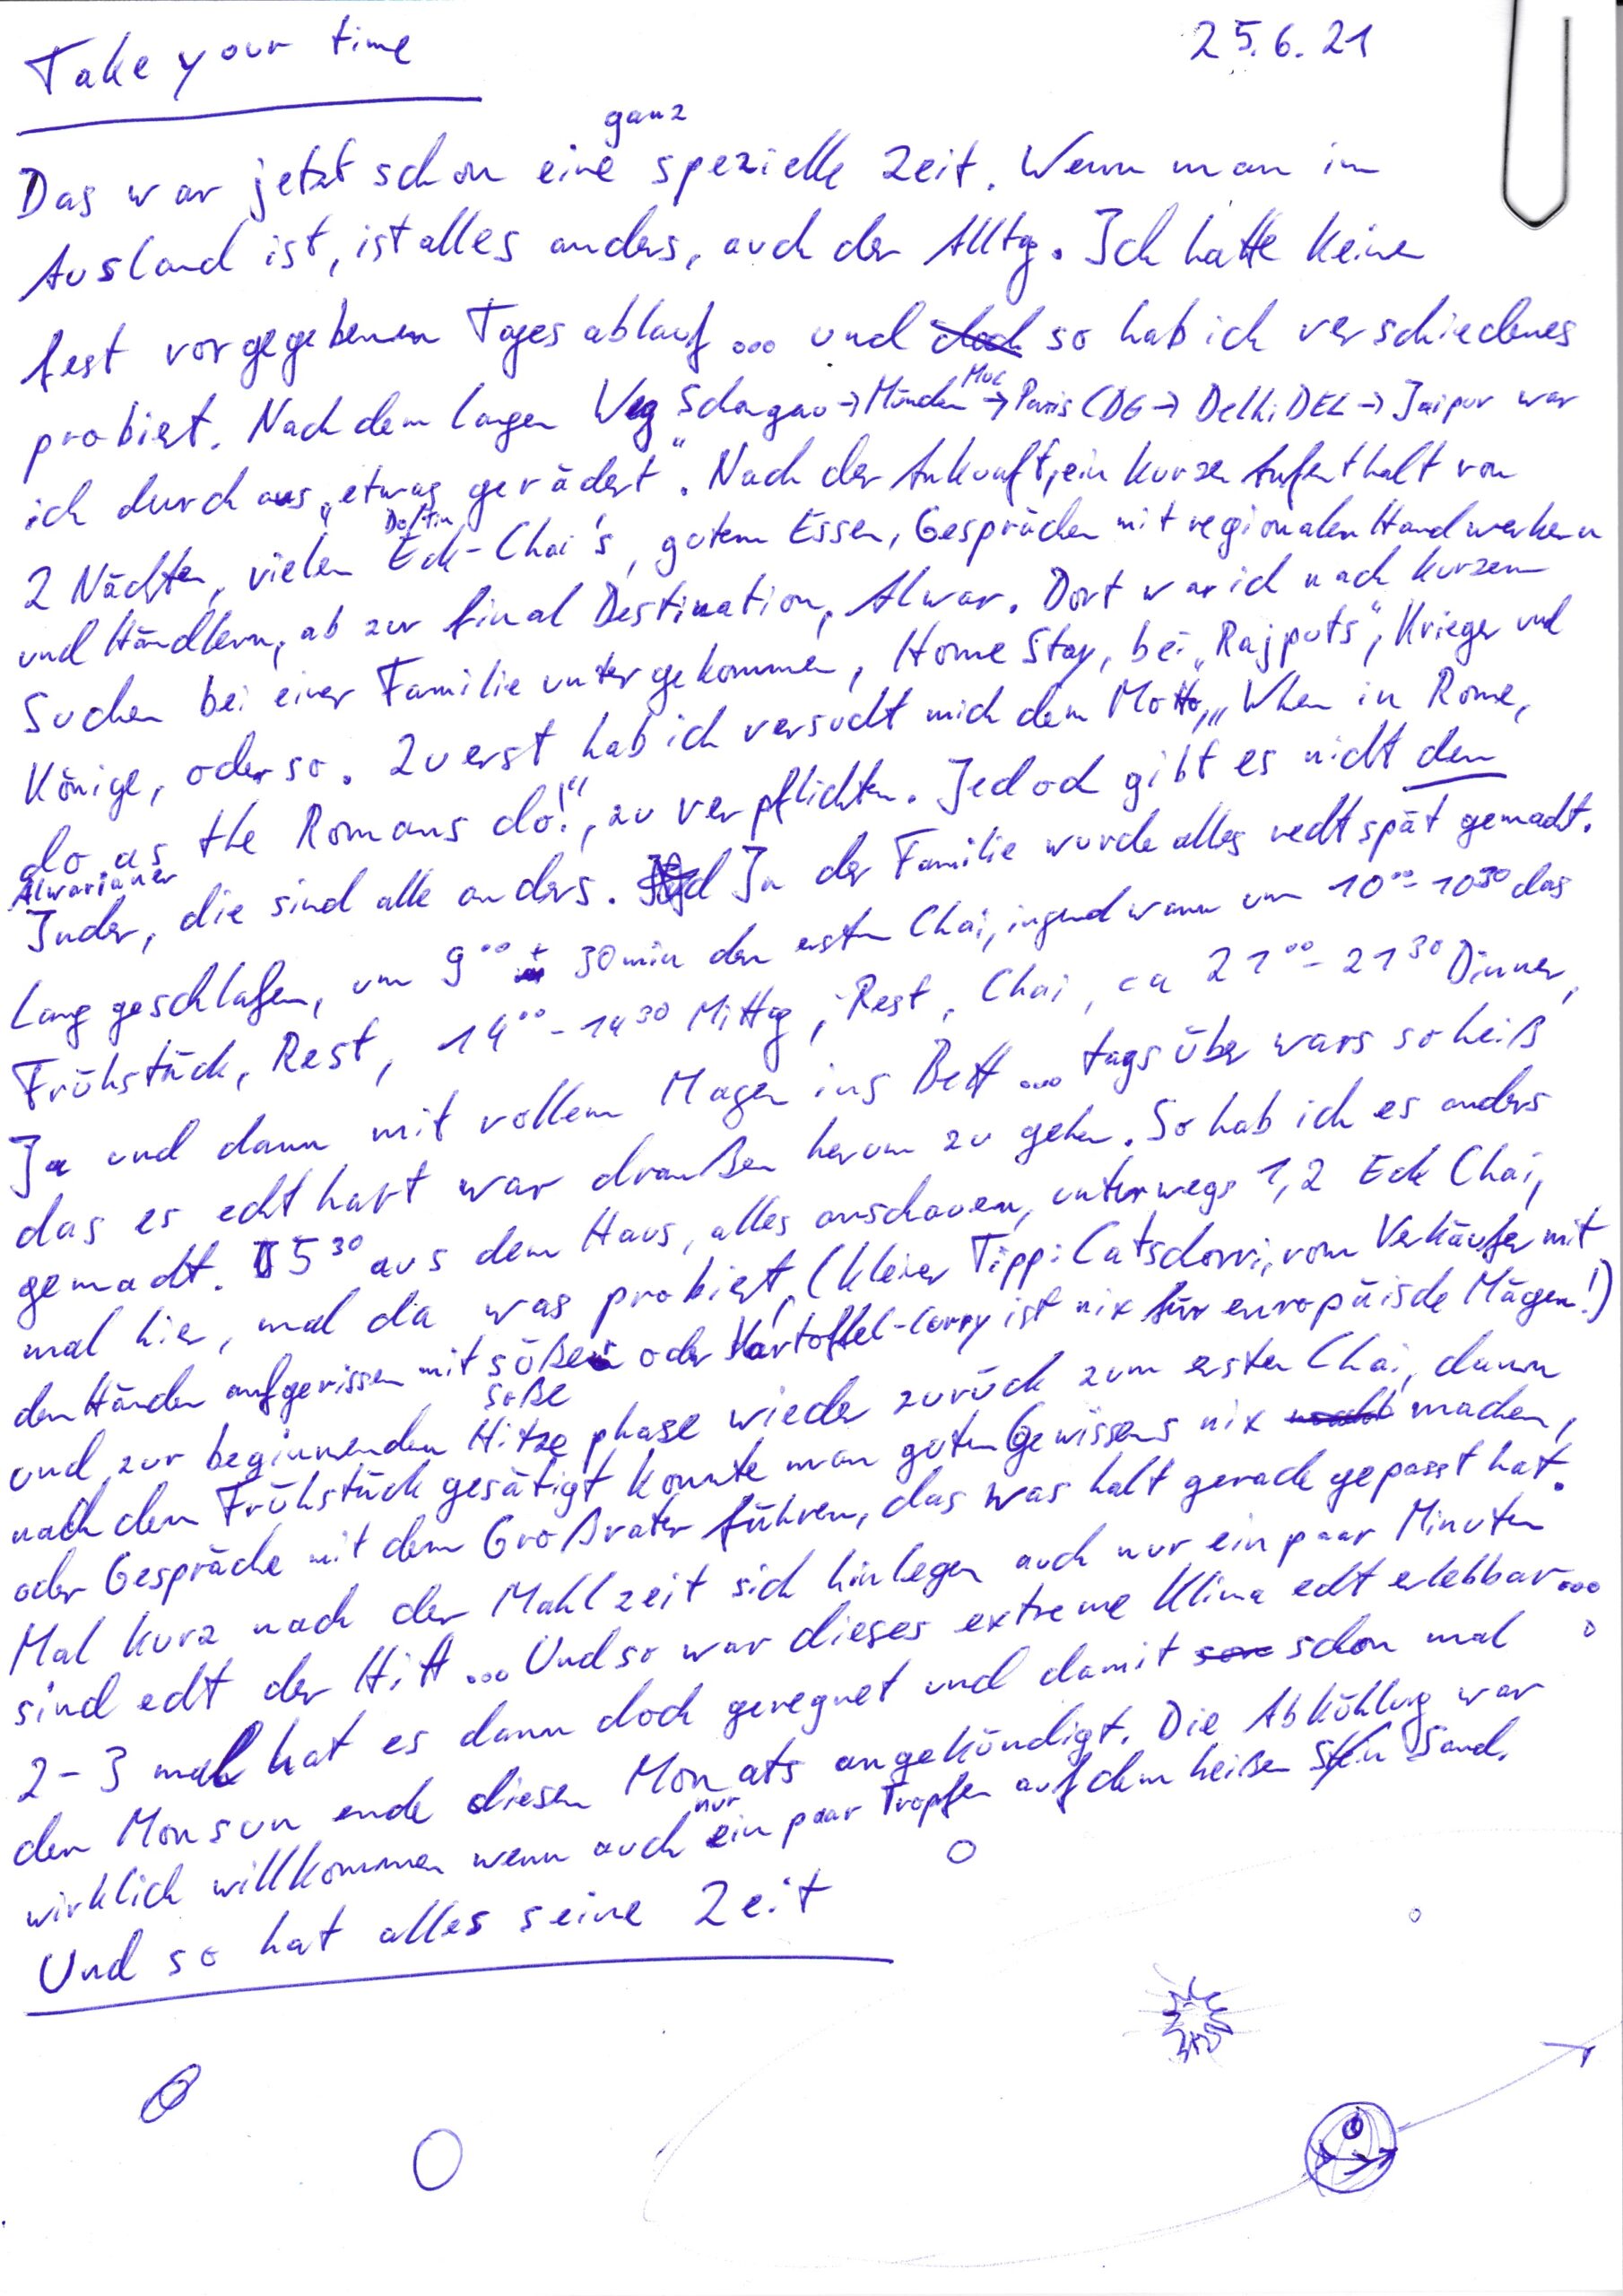 Take your time 25.6.21
ganz
Das war jetzt schon eine spezielle Zeit. Wenn man im
Ausland ist, ist alles anders, auch der Alltag. Ich hatte keinen
fest vorgegebenen Tagesablauf ... und doch so hab ich verschiedenes
probiert. Nach dem langen Weg Schongau → München MUC → Paris CDG → Delhi DEL → Jaipur war
ich durchaus „etwas gerädert". Nach der Ankunft, ein kurzer Aufenthalt von
2 Nächten, vielen Eck-Chai's, gutem Essen, Gesprächen mit regionalen Handwerkern
und Händlern, ab zur final Destination, Alwar. Dort war ich nach kurzem
Suchen bei einer Familie untergekommen, Home Stay, bei „Rajputs", Krieger und
Könige, oder so. Zuerst hab ich versucht mich dem Motto, „When in Rome,
do as the Romans do!", zu verpflichten. Jedoch gibt es nicht den
Alwarianer
Inder, die sind alle anders. In der Familie wurde alles recht spät gemacht.
Lang geschlafen, um 9°° ± 30min den ersten Chai, irgendwann um 10°°-10³⁰ das
Frühstück, Rest, 14°°-14³⁰ Mittag, Rest, Chai, ca 21°°-21³⁰ Dinner,
Ja und dann mit vollem Magen ins Bett ... tagsüber wars so heiß
das es echt hart war draußen herum zu gehen. So hab ich es anders
gemacht. 5³⁰ aus dem Haus, alles anschauen, unterwegs 1,2 Eck Chai,
mal hier, mal da was probiert, (kleiner Tipp: Catschorri, vom Verkäufer mit
den Händen aufgerissen mit süßer oder Kartoffel-Curry ist nix für europäische Mägen!)
soße
und zur beginnenden Hitzephase wieder zurück zum ersten Chai, dann
nach dem Frühstück gesättigt konnte man guten Gewissens nix machen,
oder Gespräche mit dem Großvater führen, das was halt gerade gepasst hat.
Mal kurz nach der Mahlzeit sich hinlegen auch nur ein paar Minuten
sind echt der Hit ... Und so war dieses extreme Klima echt erlebbar ...
2-3 mal hat es dann doch geregnet und damit schon mal
den Monsun ende diesen Monats angekündigt. Die Abkühlung war
wirklich willkommen wenn auch nur ein paar Tropfen auf dem heißen Stein Sand.
Und so hat alles seine Zeit